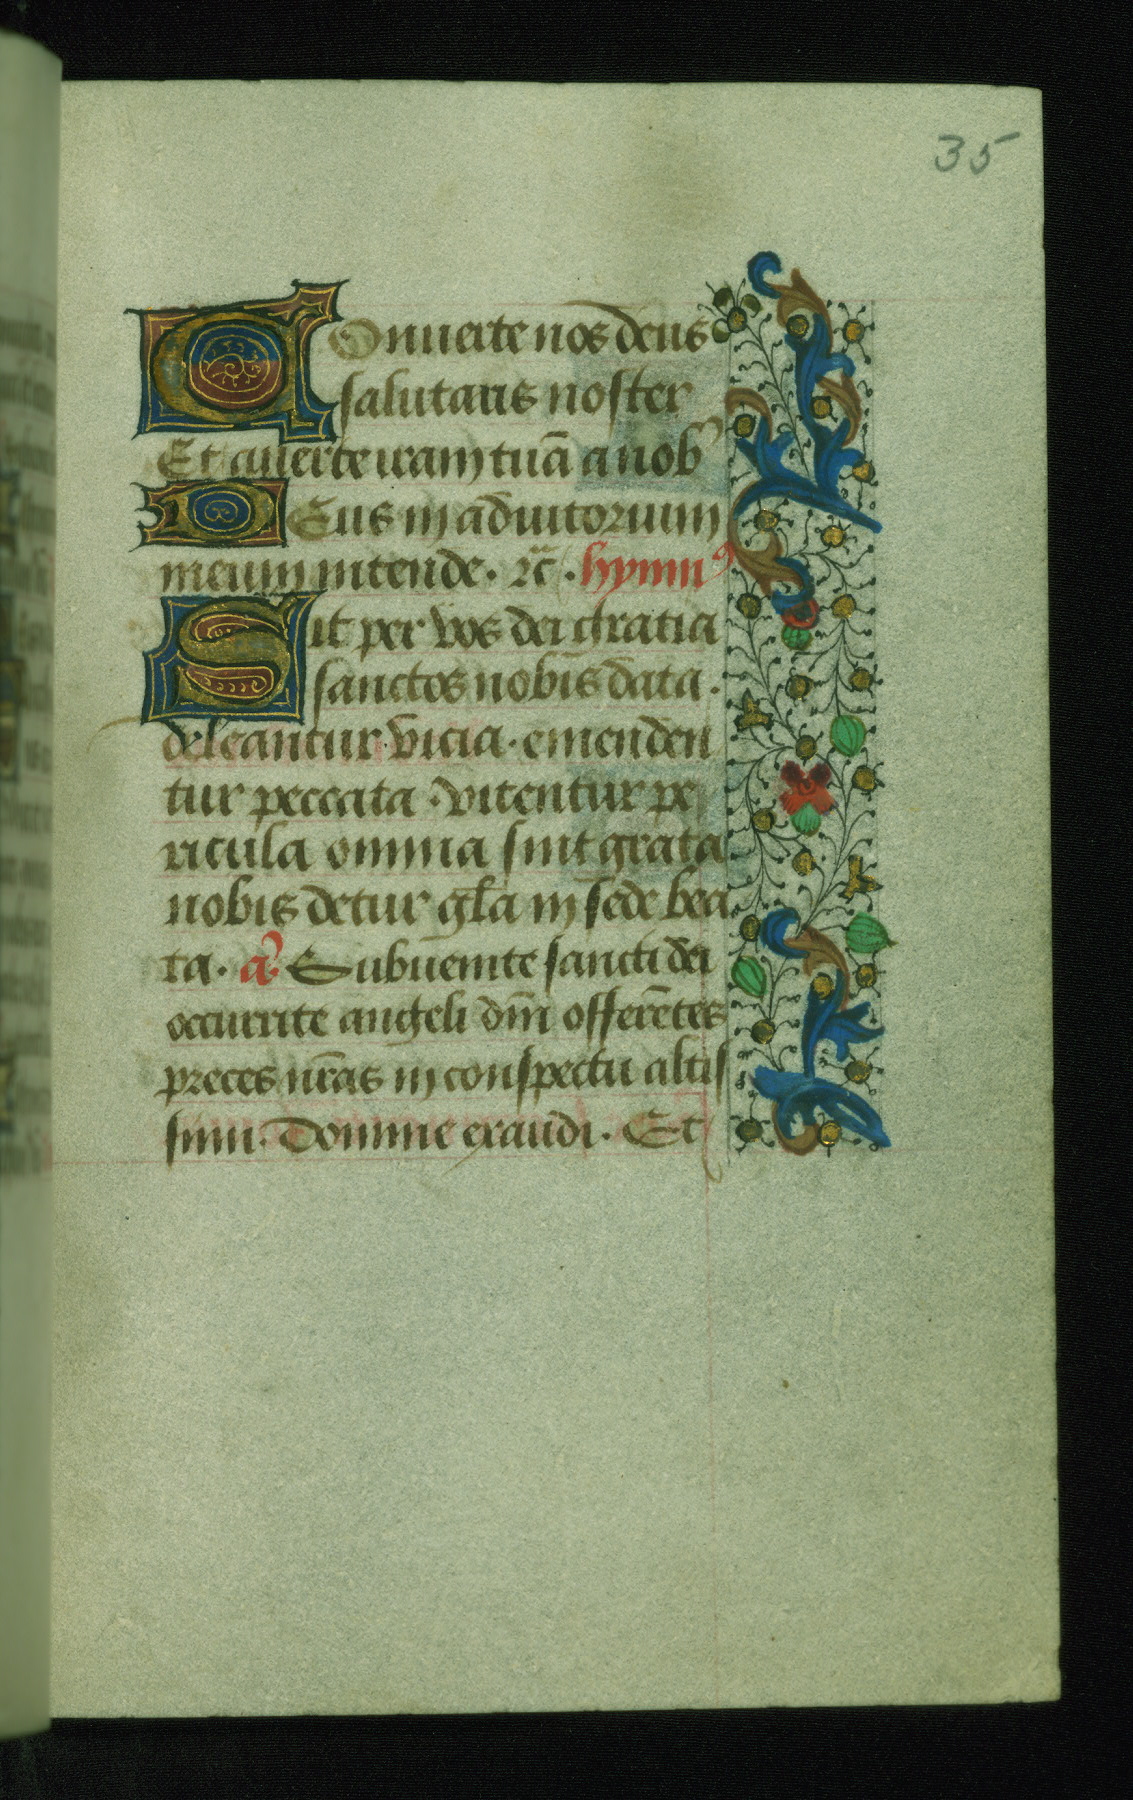 35
Conuerte nos deus
salutaris noster
Et auerte iram tuā a nob᾿
Deus in adiutorium
meum intende. ⁊c̄. hymn᾿
Sit per vos dei gratia
sanctos nobis data.
deleantur vicia. emenden
tur peccata. vitentur pe
ricula omnia sint grata
nobis detur gl̄a in sede bea
ta. a᾿. Subuenite sancti dei
occurrite angeli dm̄ offerētes
preces nr̄as in conspectu altis
simi. Domine exaudi. Et